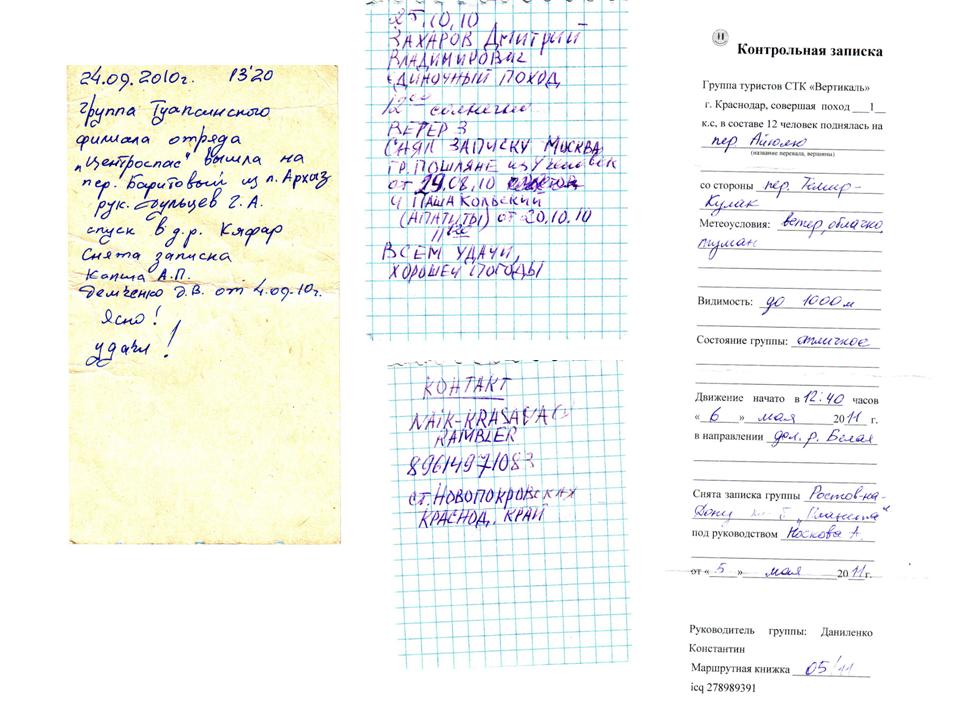 24.09.2010г. 13'20
группа Туапсинского
филиала отряда
„Центроспас" вышла на
пер. Баритовый из п. Архыз
рук. Г. А.
спуск в д.р. Кяфар
Снята записка
Капша А.П.
Демченко Д.В. от 4.09.10г.
Ясно!
удачи!
25.10.10
ЗАХАРОВ Дмитрий
ВЛАДИМИРОВИЧ
ЕДИНОЧНЫЙ ПОХОД
12⁰⁰ солнечно
ВЕТЕР 3
СНЯЛ ЗАПИСКУ МОСКВА
ГР. ПОШЛЯНЕ ИЗ ЧЕЛОВЕК
от 29.08.10
Ч ПАША КОЛЬСКИЙ
(АПАТИТЫ) от 20.10.10
ВСЕМ УДАЧИ,
ХОРОШЕЙ ПОГОДЫ
КОНТАКТ
NAIK-KRASAVA
RAMBLER
89614971083
ст. НОВОПОКРОВСКАЯ
КРАСНОД. КРАЙ
Контрольная записка
Группа туристов СТК «Вертикаль»
г. Краснодар, совершая поход 1
к.с, в составе 12 человек поднялась на
пер Айюлю
(название перевала, вершины)
со стороны пер. Темир-
Кулак
Метеоусловия: ветер, облачно,
туман
Видимость: до 1000м
Состояние группы: отличное
Движение начато в 12:40 часов
« 6 » мая 2011 г.
в направлении дол. р. Белая
Снята записка группы Ростов-на-
Дону „Планета"
под руководством Носкова А.
от « 5 » мая 2011г.
Руководитель группы: Даниленко
Константин
Маршрутная книжка 05/11
icq 278989391